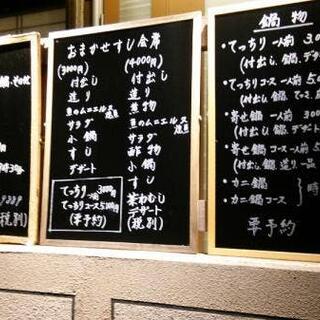 おまかせすし会席
(3000円)
付出し
造り
魚のムニエル又は焼魚
サラダ
小鍋
すし
デザート
てっちり一人前3000円
てっちりコース5000円
(要予約)
(4000円)
付出し
造り
煮物
魚のムニエル又は焼魚
サラダ
酢物
小鍋
すし
茶わんむし
デザート
(税別)
鍋物
・てっちり 一人前
(付出し、鍋、デザ
・てっちりコース 一人前
(付出し、鍋、てっ
・寄せ鍋 一人前
(付出し、鍋
・寄せ鍋コース 一人前
(付出し、鍋、造り、一品
・カニ鍋
・カニ鍋コース
時
要予約
(税別)